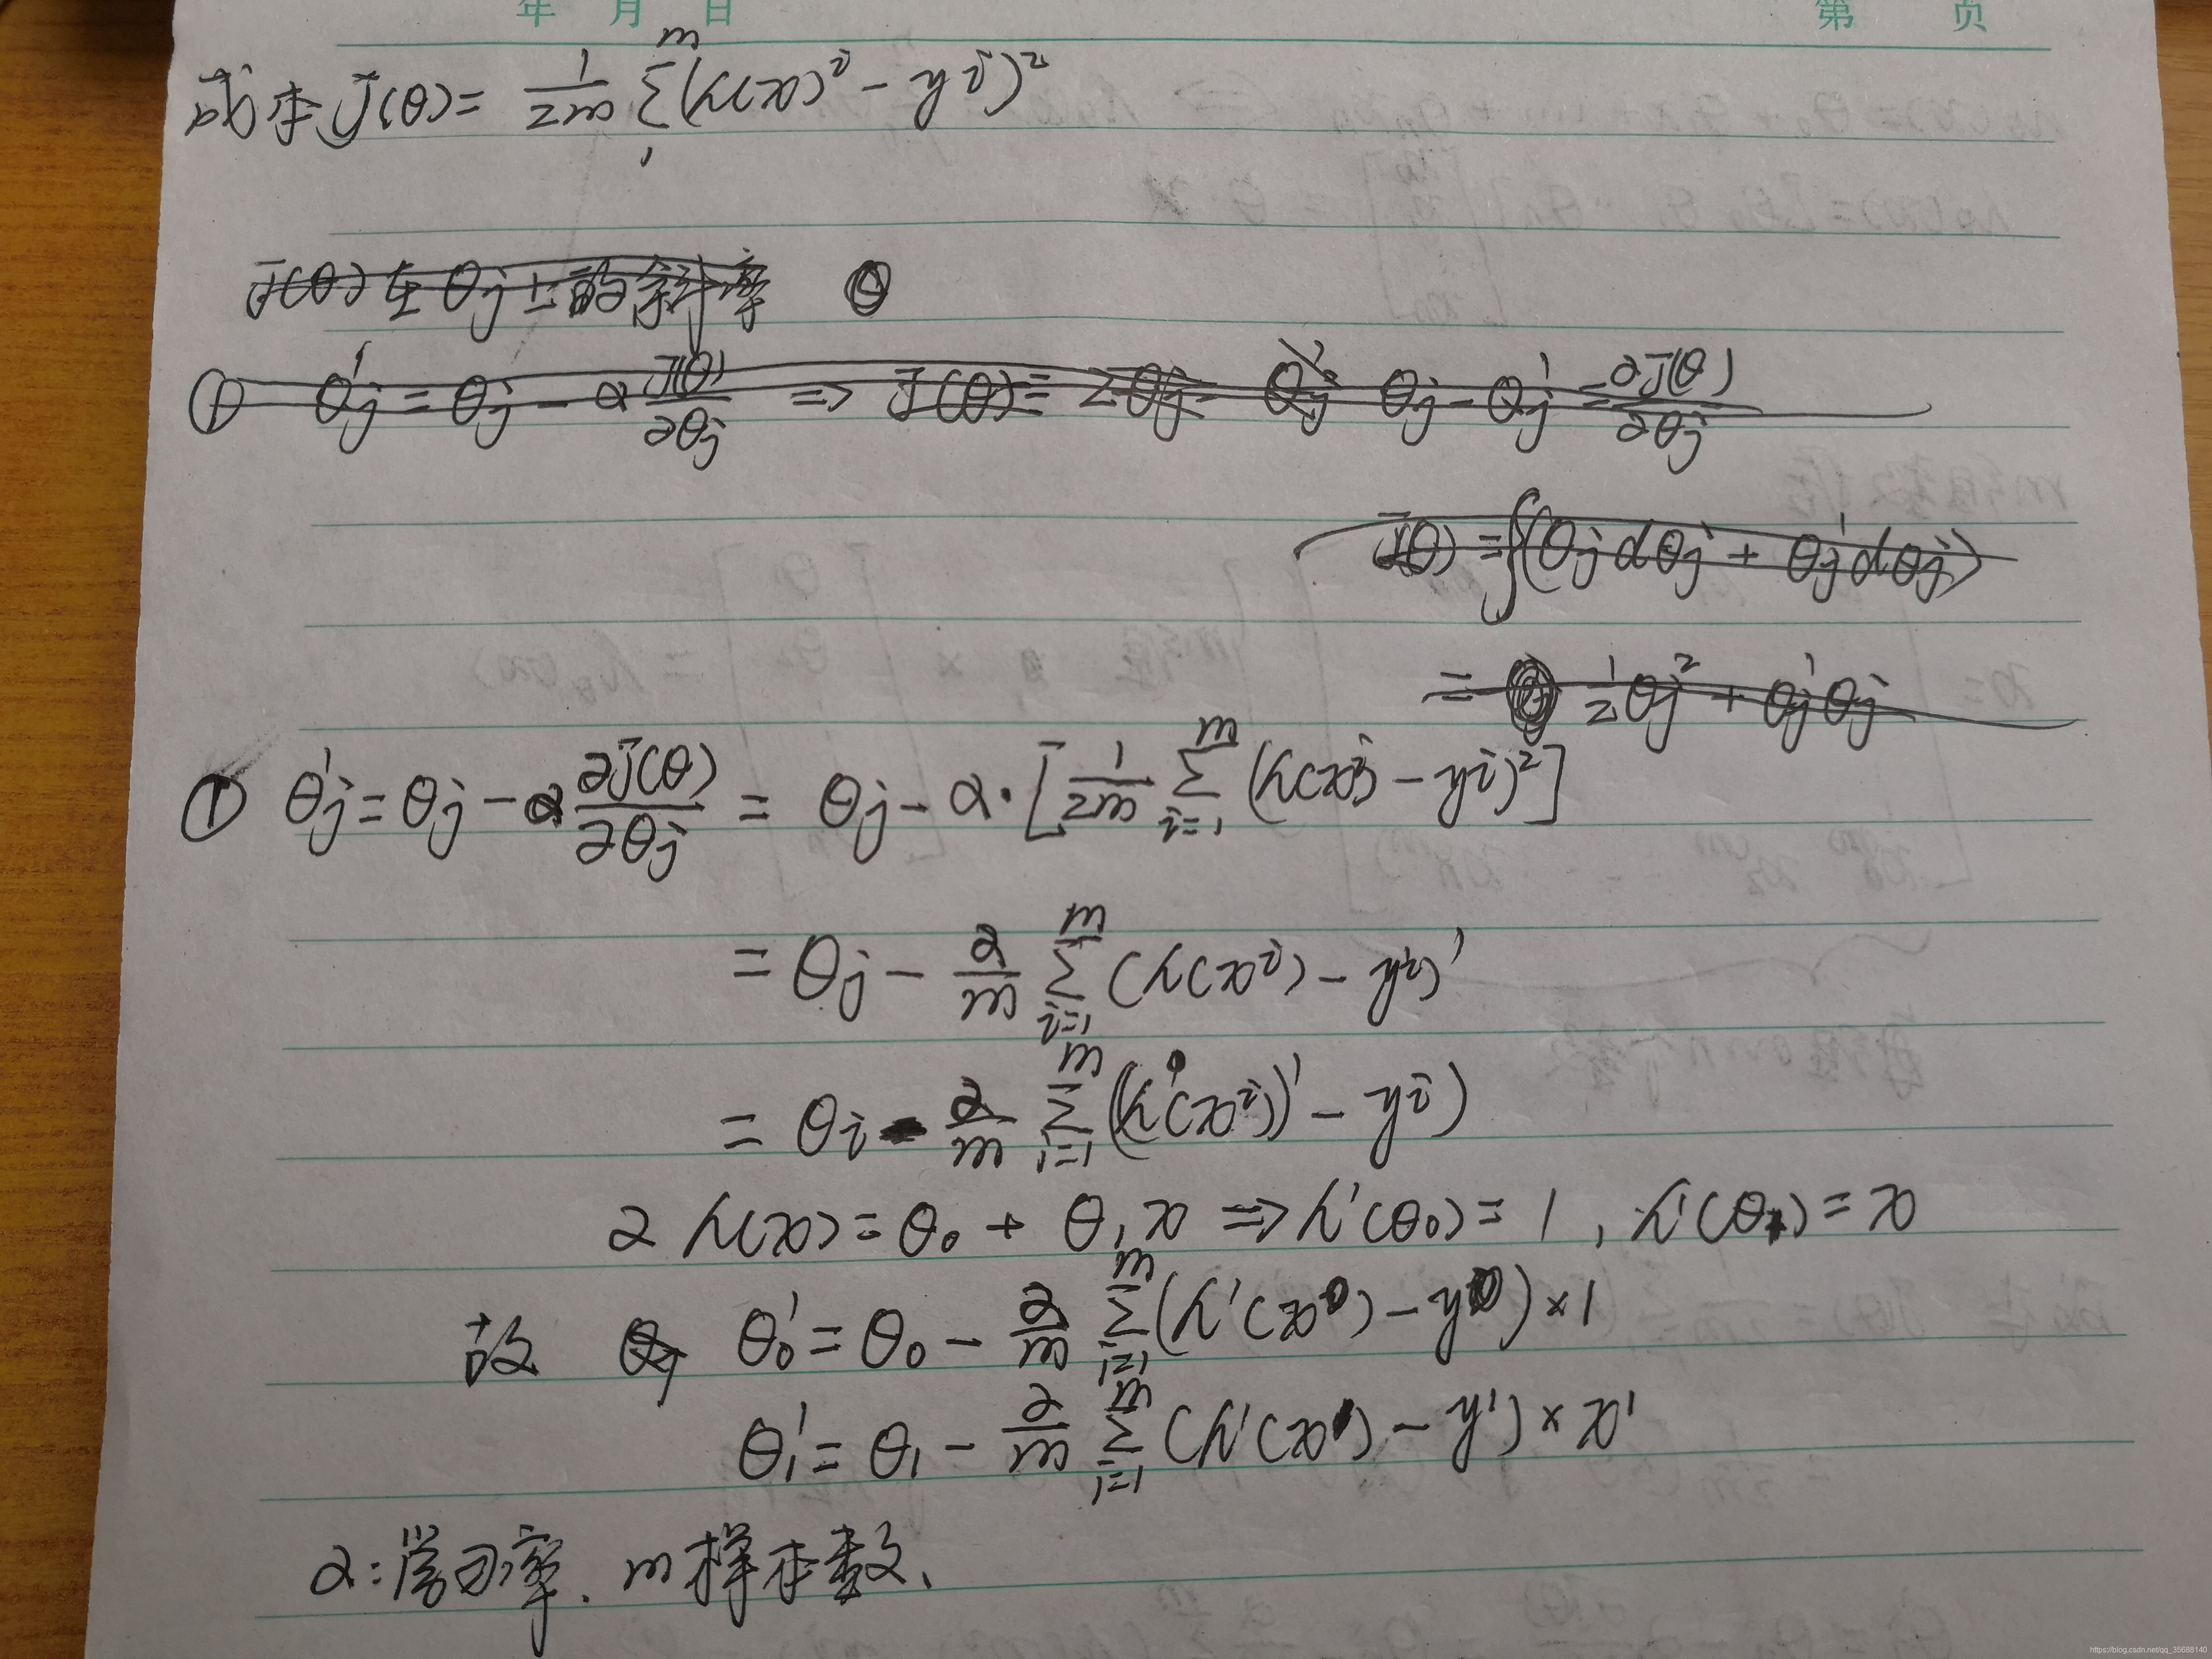 年 月 日 第 页
成本 J(θ) = 1/2m Σ₁ᵐ (h(x)ⁱ - yⁱ)²
J(θ) 在 θj 上的斜率
① θj' = θj - α J(θ)/∂θj => J(θ) = Σθj - θj' θj - θj' = ∂J(θ)/∂θj
J(θ) = ∫(θj dθj + θj' dθj)
= 1/2 θj² + θj' θj
① θj' = θj - α ∂J(θ)/∂θj = θj - α · [1/2m Σᵢ₌₁ᵐ (h(xⁱ) - yⁱ)²]
= θj - α/m Σᵢ₌₁ᵐ (h(xⁱ) - yⁱ)'
= θi - α/m Σᵢ₌₁ᵐ ((h(xⁱ))' - yⁱ)
2 h(x) = θ₀ + θ₁x => h'(θ₀) = 1 , h'(θ₁) = x
故 θ₀' = θ₀ - α/m Σᵢ₌₁ᵐ (h'(x) - y) × 1
θ₁' = θ₁ - α/m Σᵢ₌₁ᵐ (h'(x) - y') × x'
α: 学习率. m样本数.
https://blog.csdn.net/qq_35688140